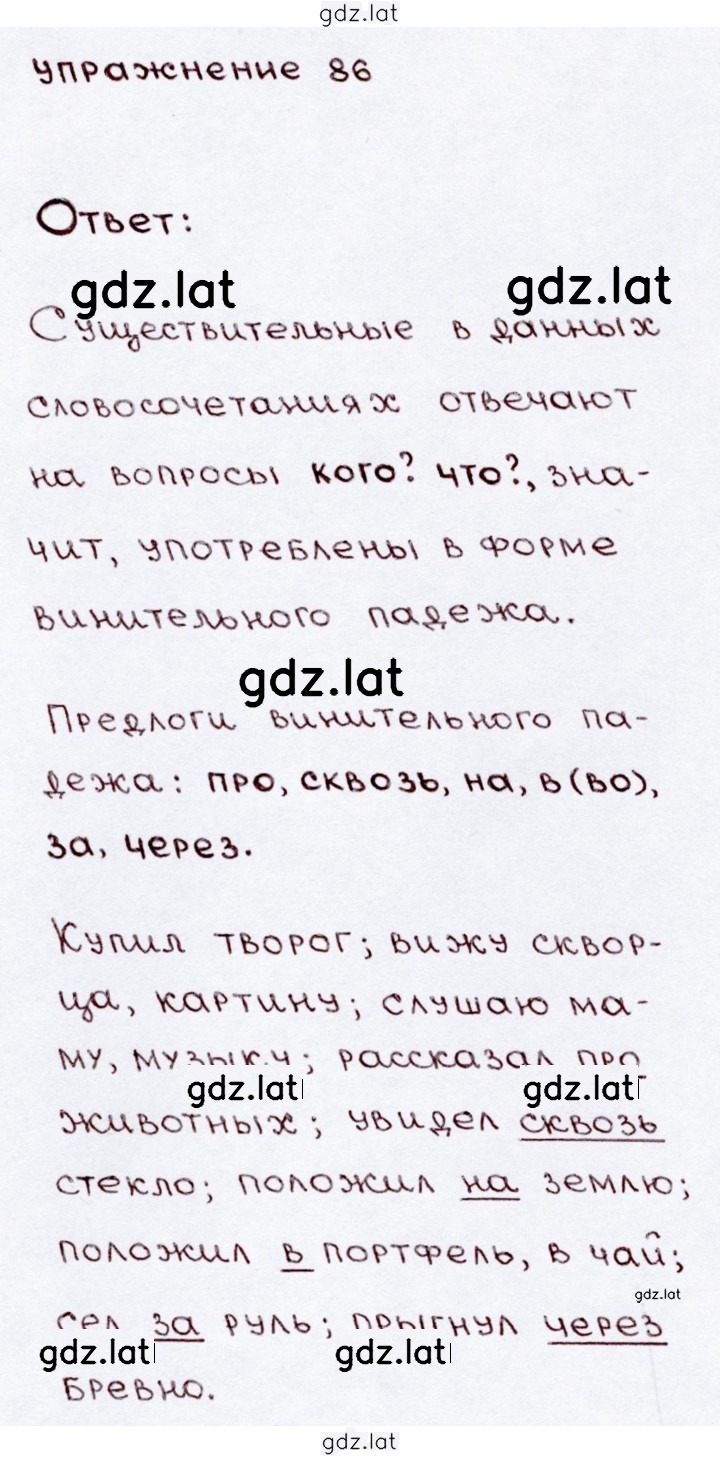 gdz.lat
упражнение 86
Ответ:
gdz.lat gdz.lat
Существительные в данных
словосочетаниях отвечают
на вопросы кого? что?, зна-
чит, употреблены в форме
винительного падежа.
gdz.lat
Предлоги винительного па-
дежа: про, сквозь, на, в (во),
за, через.
Купил творог; вижу сквор-
ца, картину; слушаю ма-
му, музыку; рассказал про
gdz.lat gdz.lat
животных; увидел сквозь
стекло; положил на землю;
положил в портфель, в чай;
gdz.lat
сел за руль; прыгнул через
gdz.lat gdz.lat
бревно.
gdz.lat